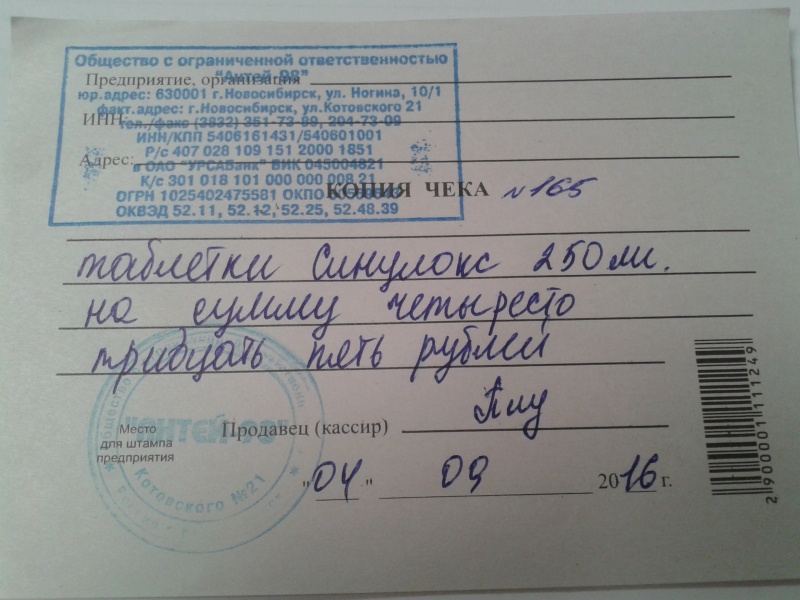 Общество с ограниченной ответственностью
Предприятие, организация
"Антей 98"
юр.адрес: 630001 г.Новосибирск, ул. Ногина, 10/1
факт.адрес: г.Новосибирск, ул.Котовского 21
ИНН:
тел./факс (3832) 351-73-99, 204-73-09
ИНН/КПП 5406161431/540601001
Р/с 407 028 109 151 2000 1851
Адрес:
в ОАО "УРСАБанк" БИК 045004821
К/с 301 018 101 000 000 008 21
ОГРН 1025402475581 ОКПО
КОПИЯ ЧЕКА №165
ОКВЭД 52.11, 52.12, 52.25, 52.48.39
таблетки Синулокс 250 мг.
на сумму четыресто
тридцать пять рублей
"АНТЕЙ 98"
Котовского №21
Место
для штампа
предприятия
Продавец (кассир)
"04" 09 2016 г.
2 900001 111249